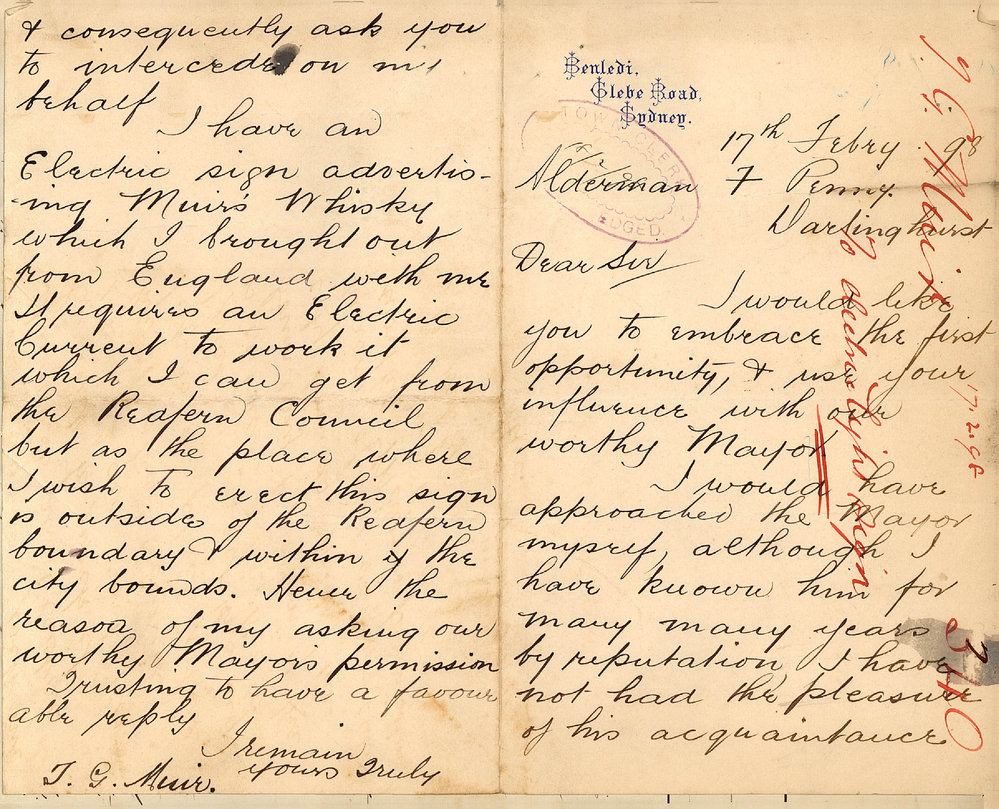 Benledi,
Glebe Road,
Sydney.
17th Febry. 98
Alderman F Penny.
Darlinghurst
Dear Sir
I would like
you to embrace the first
opportunity, & use your
influence with our
worthy Mayor
I would have
approached the Mayor
myself, although I
have known him for
many many years
by reputation, I have
not had the pleasure
of his acquaintance
& consequently ask you
to intercede on my
behalf
I have an
Electric sign advertis-
-ing Muir's Whisky
which I brought out
from England with me
It requires an Electric
Current to work it
which I can get from
the Redfern Council
but as the place where
I wish to erect this sign
is outside of the Redfern
boundary & within y the
city bounds. Hence the
reason of my asking our
worthy Mayors permission
Trusting to have a favour
able reply
I remain
yours Truly
T. G. Muir.
TOWN CLERK
T G. Muir
Electric Light Sign
17.2.98
340